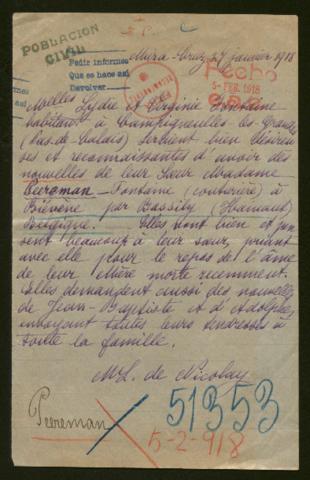 POBLACION
CIVIL
Pedir informes
Que se hace así
Devolver
Cruz, 27 janvier 1918
Fecho
5-FEB. 1918
Melles Lydie et Virginie Fontaine
habitant à Campigneulles les Grandes
(Pas-de-Calais) seraient bien désireu-
ses et reconnaissantes d'avoir des
nouvelles de leur sœur Madame
Peereman-Fontaine (couturière) à
Biévène par Bassilly (Hainaut)
Belgique. Elles vont bien et pen
sent beaucoup à leur sœur, priant
avec elle pour le repos de l'âme
de leur Mère morte récemment.
Elles demandent aussi des nouvelles
de Jean-Baptiste et d'Adolphe,
envoyant toutes leurs tendresses à
toute la famille.
de Nicolay
Peereman
51353
5-2-918